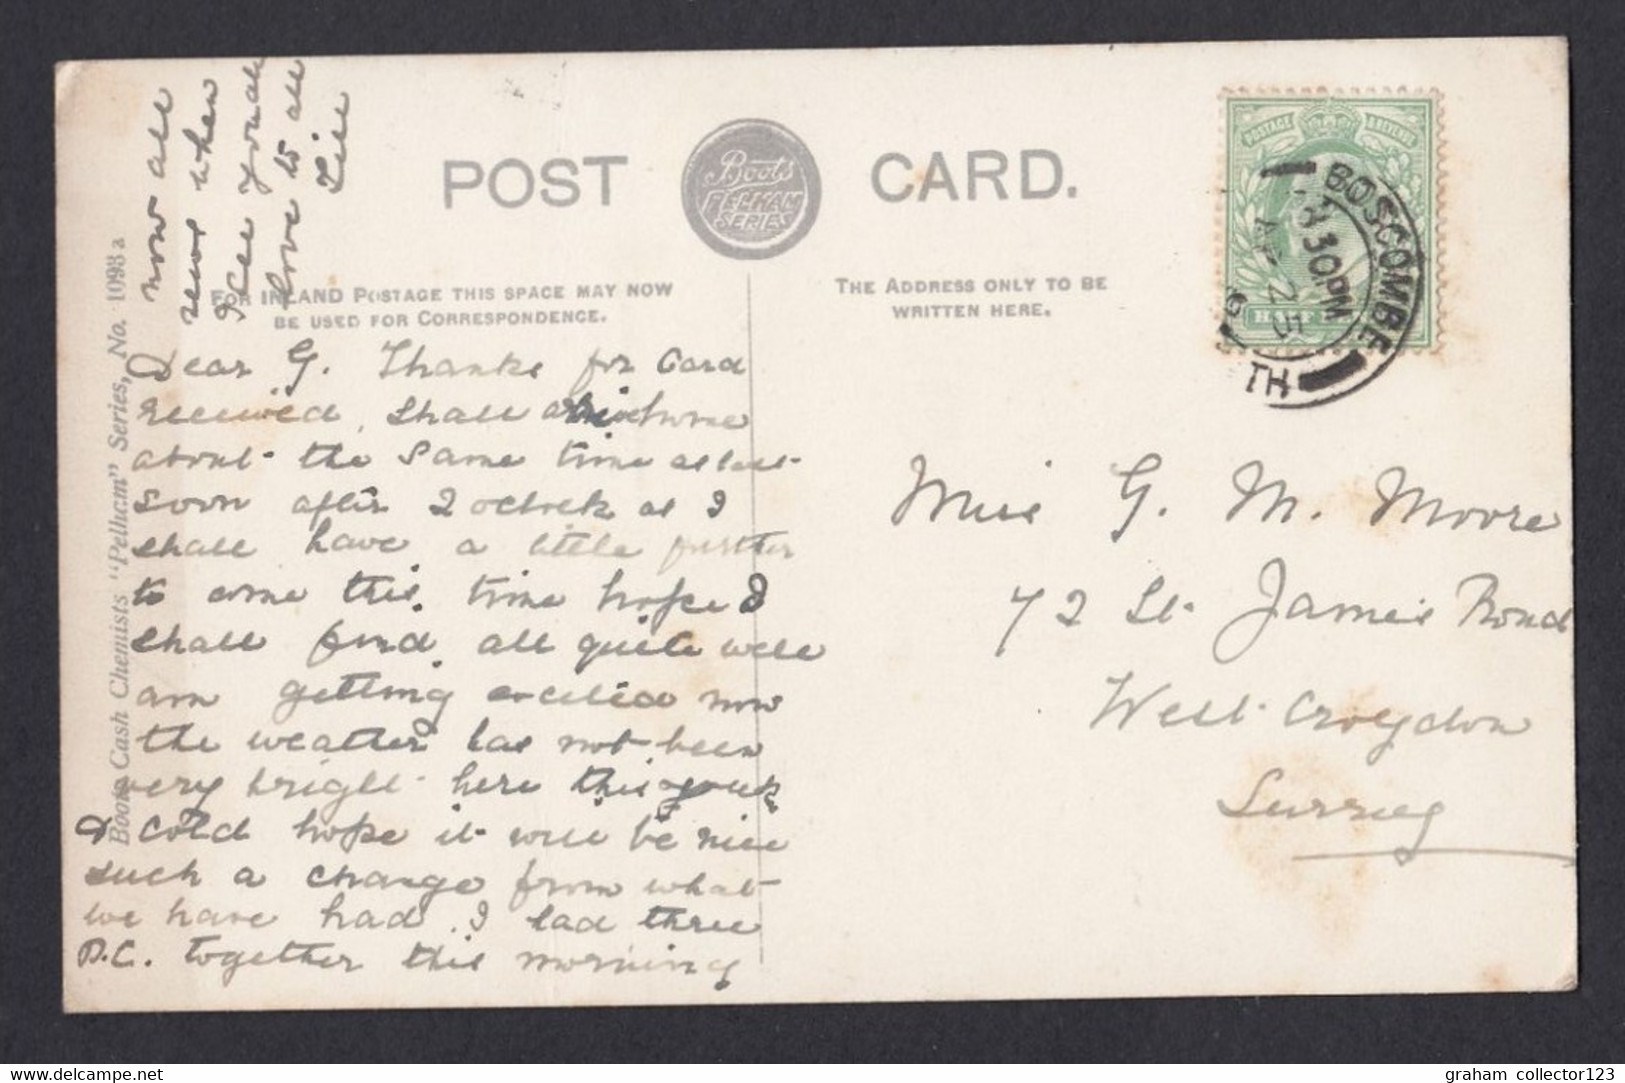 POST CARD.
Boots
PELHAM
SERIES
FOR INLAND POSTAGE THIS SPACE MAY NOW
BE USED FOR CORRESPONDENCE.
THE ADDRESS ONLY TO BE
WRITTEN HERE.
POSTAGE REVENUE
HALF
BOSCOMBE
3 30 PM
25
TH
Boots Cash Chemists "Pelham" Series, No. 1093 a
Dear G. Thanks for Card
received, shall arrive home
about the same time at least
soon after 2 oclock as I
shall have a little further
to come this time hope I
shall find all quite well
am getting excited now
the weather has not been
very bright here this week
& cold hope it will be nice
such a change from what
we have had. I had three
P.C. together this morning
now all
news when
I see you all
love to all
Till
Miss G. M. Moore
72 St. James's Road
West Croydon
Surrey
graham collector123